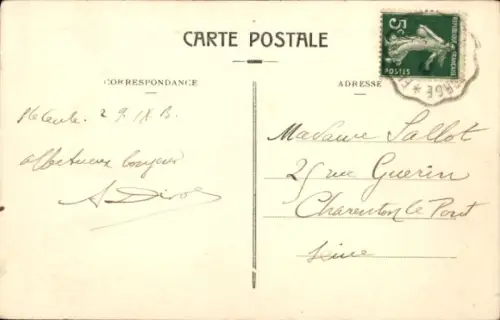 CARTE POSTALE
CORRESPONDANCE
ADRESSE
5c
RÉPUBLIQUE FRANÇAISE
POSTES
29. IX
affectueux bonjour
Madame Sallot
25 rue Guérin
Charenton le Pont
Seine